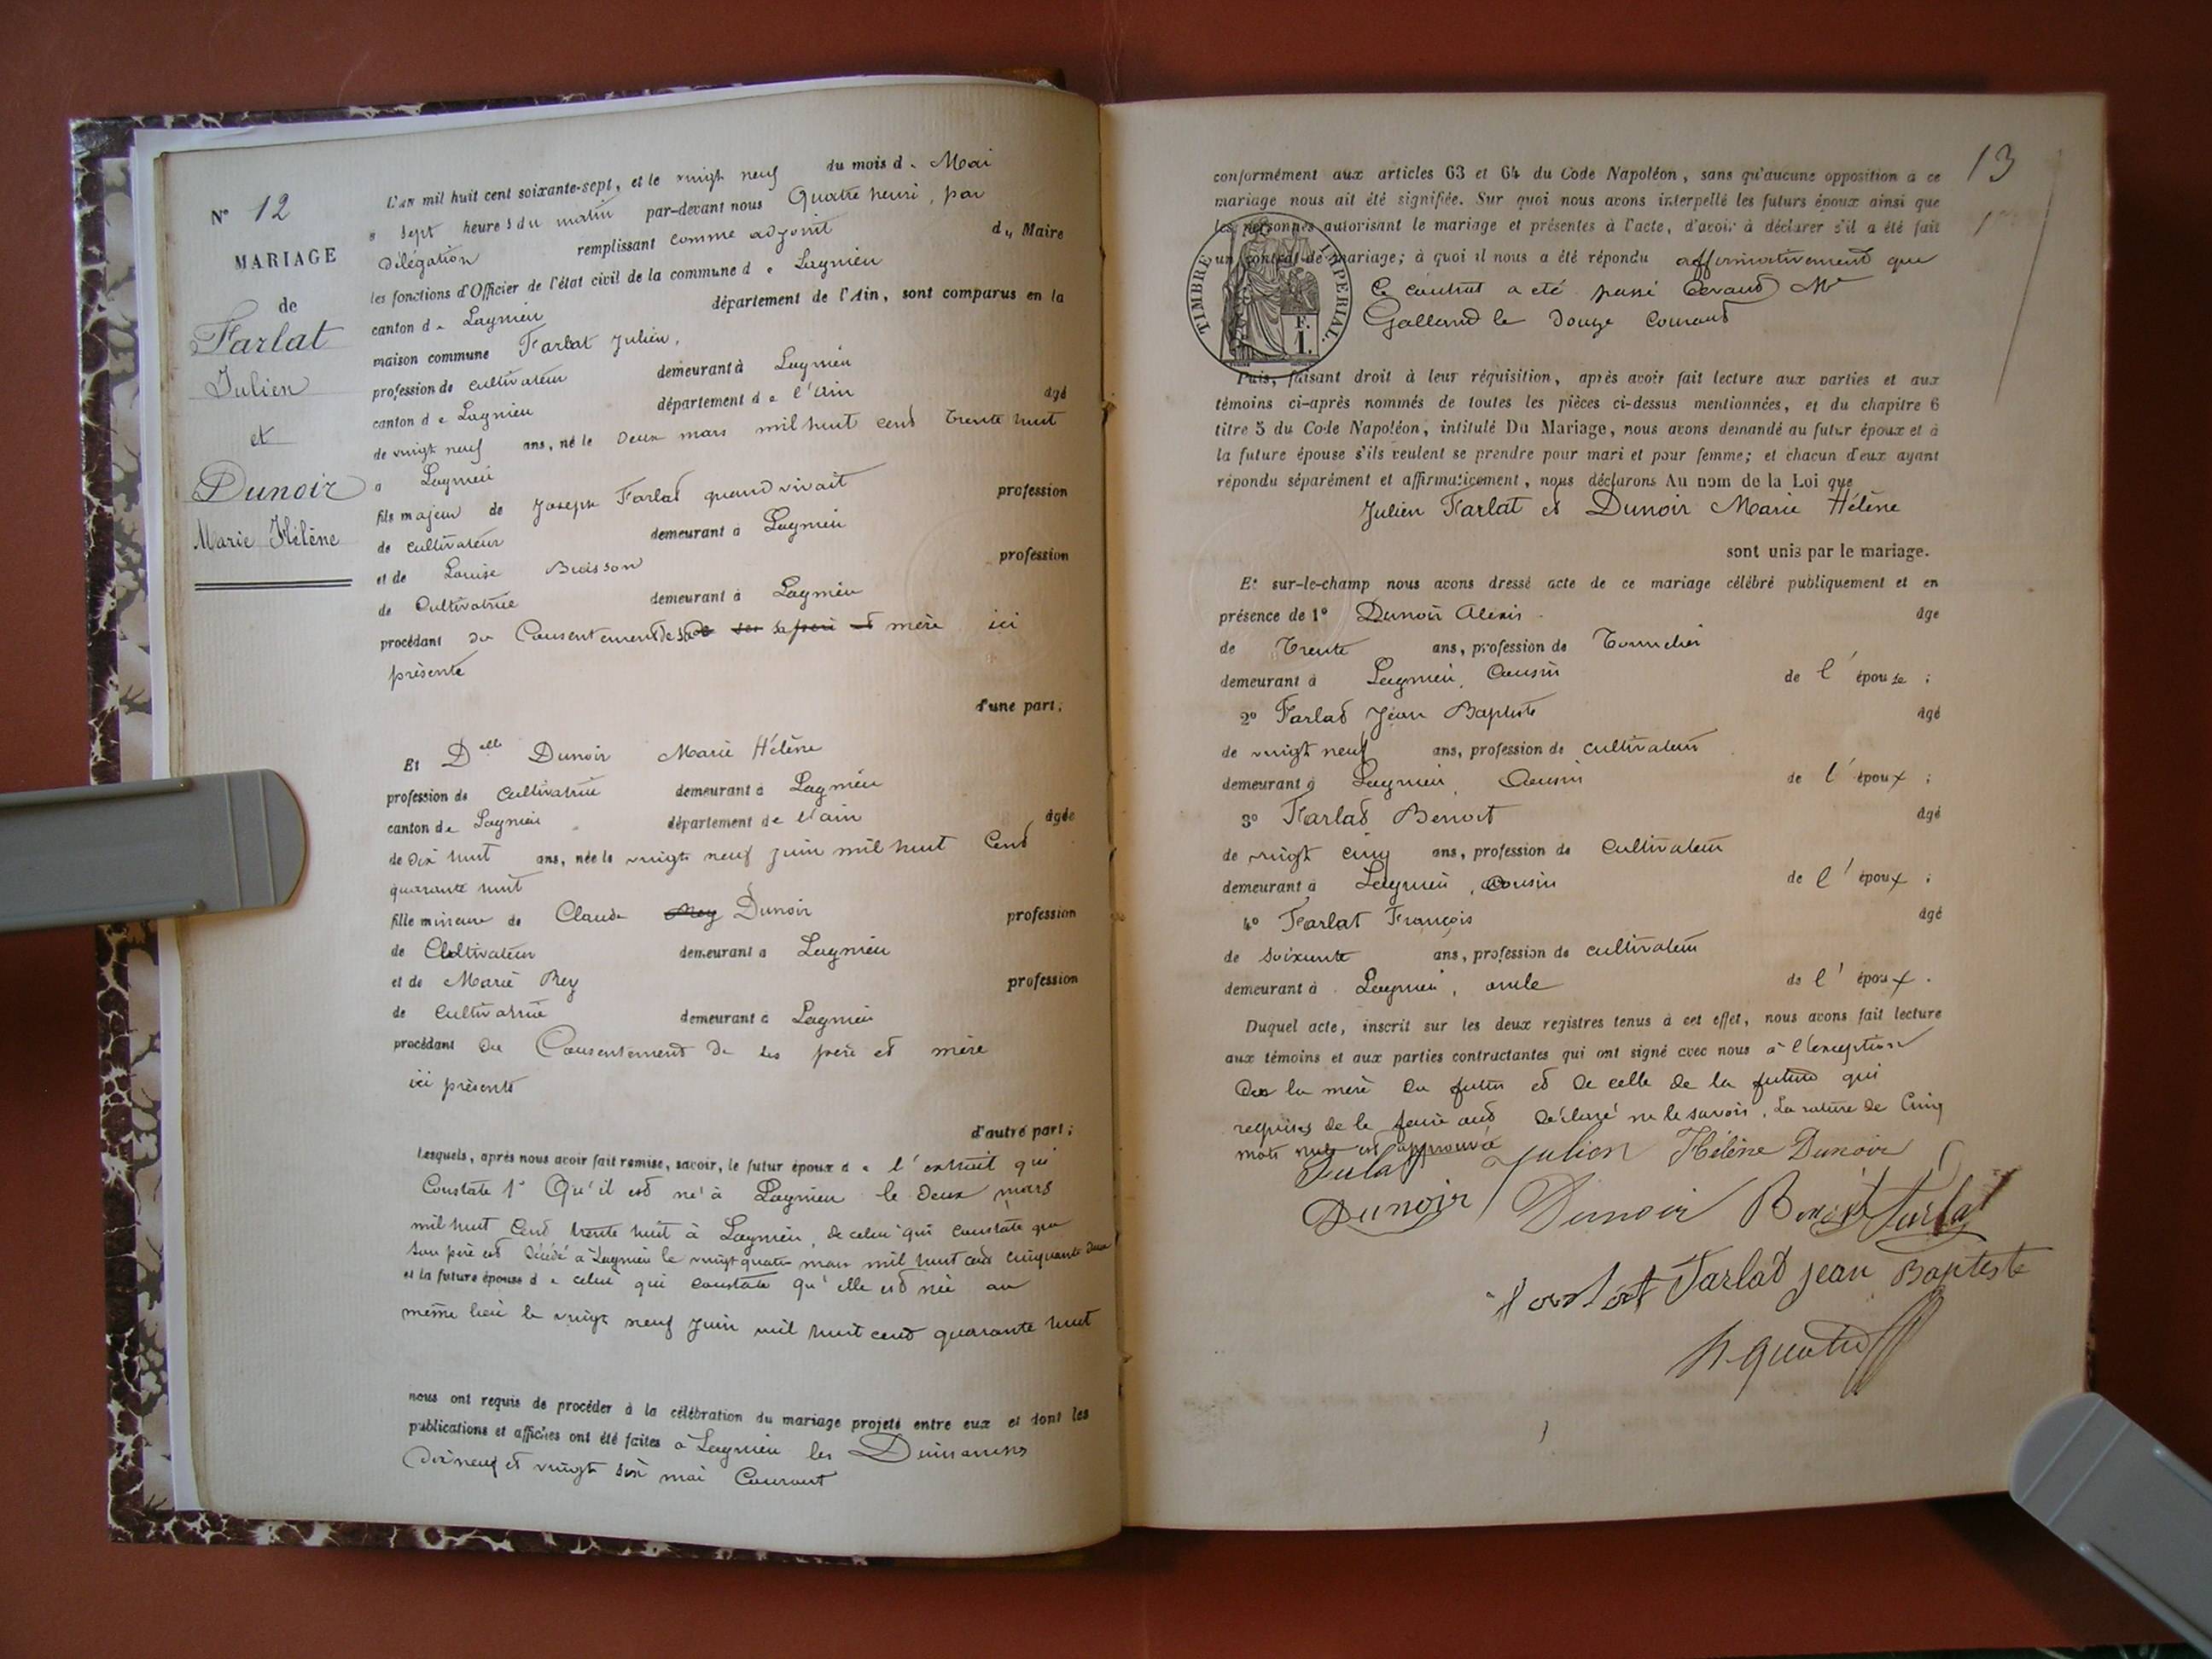 N° 12
MARIAGE
de
Farlat
Julien
et
Dunoir
Marie Hélène
L'an mil huit cent soixante-sept, et le vingt neuf du mois d. Mai
à sept heures du matin par-devant nous Quatre henri, par
délégation remplissant comme adjoint du Maire
les fonctions d'Officier de l'état civil de la commune de Lagnieu
canton de Lagnieu département de l'Ain, sont comparus en la
maison commune Farlat Julien,
profession de cultivateur demeurant à Lagnieu
canton de Lagnieu département de l'ain âgé
de vingt neuf ans, né le Deux mars mil huit cent trente huit
à Lagnieu
fils majeur de Joseph Farlat quand vivait profession
de cultivateur demeurant à Lagnieu
et de Louise Buisson profession
de Cultivatrice demeurant à Lagnieu
procédant du Consentement de sa père et mère ici
présente
d'une part;
Et Delle Dunoir Marie Hélène
profession de cultivatrice demeurant à Lagnieu
canton de Lagnieu département de l'ain âgée
de dix huit ans, née le vingt neuf juin mil huit Cent
quarante huit
fille mineure de Claude Rey Dunoir profession
de Cultivateur demeurant à Lagnieu
et de Marie Rey profession
de cultivatrice demeurant à Lagnieu
procédant du Consentement de ses père et mère
ici présents
d'autre part;
Lesquels, après nous avoir fait remise, savoir, le futur époux de l'extrait qui
Constate 1° Qu'il est né à Lagnieu le deux mars
mil huit Cent trente huit à Lagnieu, de celui qui constate que
son père est décédé à Lagnieu le vingt quatre mars mil huit cent cinquante deux
et la future épouse de celui qui constate qu'elle est née au
même lieu le vingt neuf juin mil huit cent quarante huit
nous ont requis de procéder à la célébration du mariage projeté entre eux et dont les
publications et affiches ont été faites à Lagnieu les Dimanches
Dix neuf et vingt six mai Courant
13
conformément aux articles 63 et 64 du Code Napoléon, sans qu'aucune opposition à ce
mariage nous ait été signifiée. Sur quoi nous avons interpellé les futurs époux ainsi que
les personnes autorisant le mariage et présentes à l'acte, d'avoir à déclarer s'il a été fait
un contrat de mariage; à quoi il nous a été répondu affirmativement que
Ce contrat a été passé Devant Me
Galland le douze Courant
TIMBRE IMPERIAL.
F.
1.
Puis, faisant droit à leur réquisition, après avoir fait lecture aux parties et aux
témoins ci-après nommés de toutes les pièces ci-dessus mentionnées, et du chapitre 6
titre 5 du Code Napoléon, intitulé Du Mariage, nous avons demandé au futur époux et à
la future épouse s'ils veulent se prendre pour mari et pour femme; et chacun d'eux ayant
répondu séparément et affirmativement, nous déclarons Au nom de la Loi que
Julien Farlat et Dunoir Marie Hélène
sont unis par le mariage.
Et sur-le-champ nous avons dressé acte de ce mariage célébré publiquement et en
présence de 1° Dunoir Alexis âge
de Trente ans, profession de Tonnelier
demeurant à Lagnieu, Cousin de l'épouse;
2° Farlat Jean Baptiste âgé
de vingt neuf ans, profession de cultivateur
demeurant à Lagnieu, Cousin de l'époux;
3° Farlat Benoit âgé
de vingt cinq ans, profession de Cultivateur
demeurant à Lagnieu, cousin de l'époux;
4° Farlat François âgé
de soixante ans, profession de cultivateur
demeurant à Lagnieu, oncle de l'époux.
Duquel acte, inscrit sur les deux registres tenus à cet effet, nous avons fait lecture
aux témoins et aux parties contractantes qui ont signé avec nous à l'exception
de la mère du futur et de celle de la future qui
requises de le faire ont déclaré ne le savoir. La rature de Cinq
mots nuls est approuvée
Julien Hélène Dunoir
Dunoir Dunoir Benoit Farlat
Farlat Jean Baptiste
h quatre